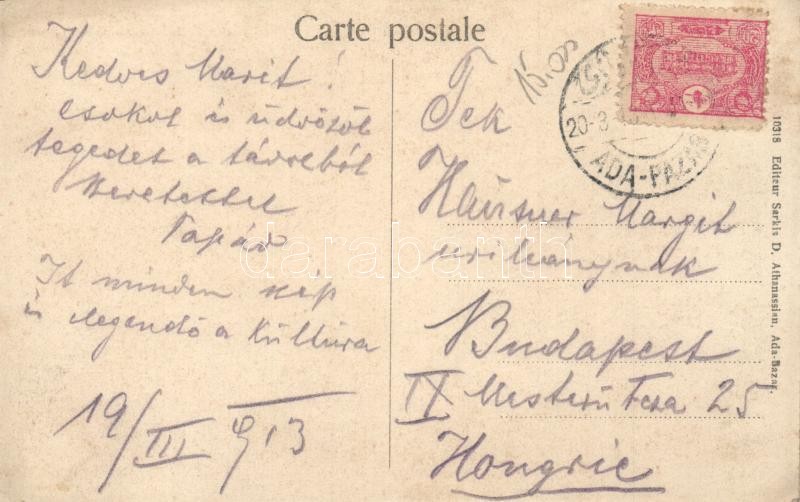 Carte postale
Kedves Marit!
csokol és üdvözöl
tegedet a távolból
szeretettel
Papád
It minden szép
és elegendő a kultura
19/III 913
15.00
Tek
Hausner Margit
urileánynak
Budapest
IX Mester utca 25
Hongrie
20-3
ADA-PAZAR
10318 Editeur Sarkis D. Athanassian, Ada-Bazar.
darabanth